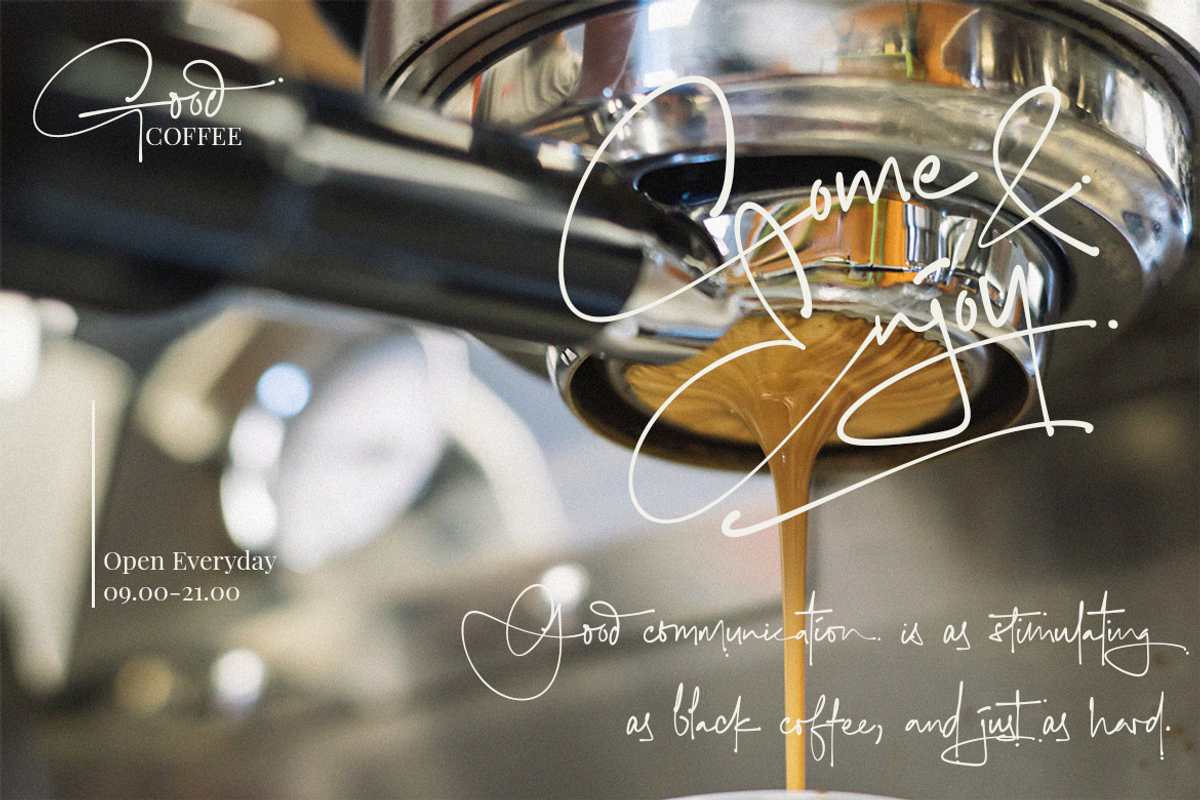 Good
COFFEE
Come &
Enjoy
Open Everyday
09.00-21.00
Good communication is as stimulating
as black coffee, and just as hard.